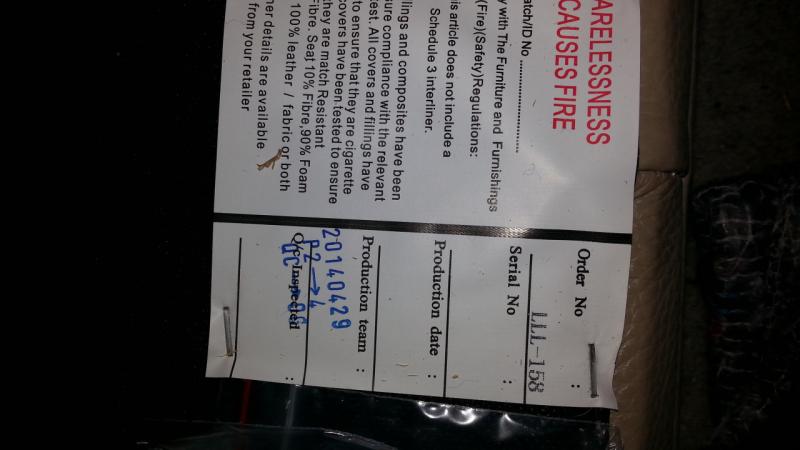 ARELESSNESS
CAUSES FIRE
atch/ID No ............................
y with The Furniture and Furnishings
(Fire)(Safety)Regulations:
is article does not include a
Schedule 3 interliner.
llings and composites have been
ure compliance with the relevant
est. All covers and fillings have
to ensure that they are cigarette
covers have been tested to ensure
hey are match Resistant
Fibre. Seat,10% Fibre,90% Foam
100% leather / fabric or both
her details are available
from your retailer
Order No :
LLL-158
Serial No :
Production date :
Production team :
20140429
P2→4
Q/c Inspected :